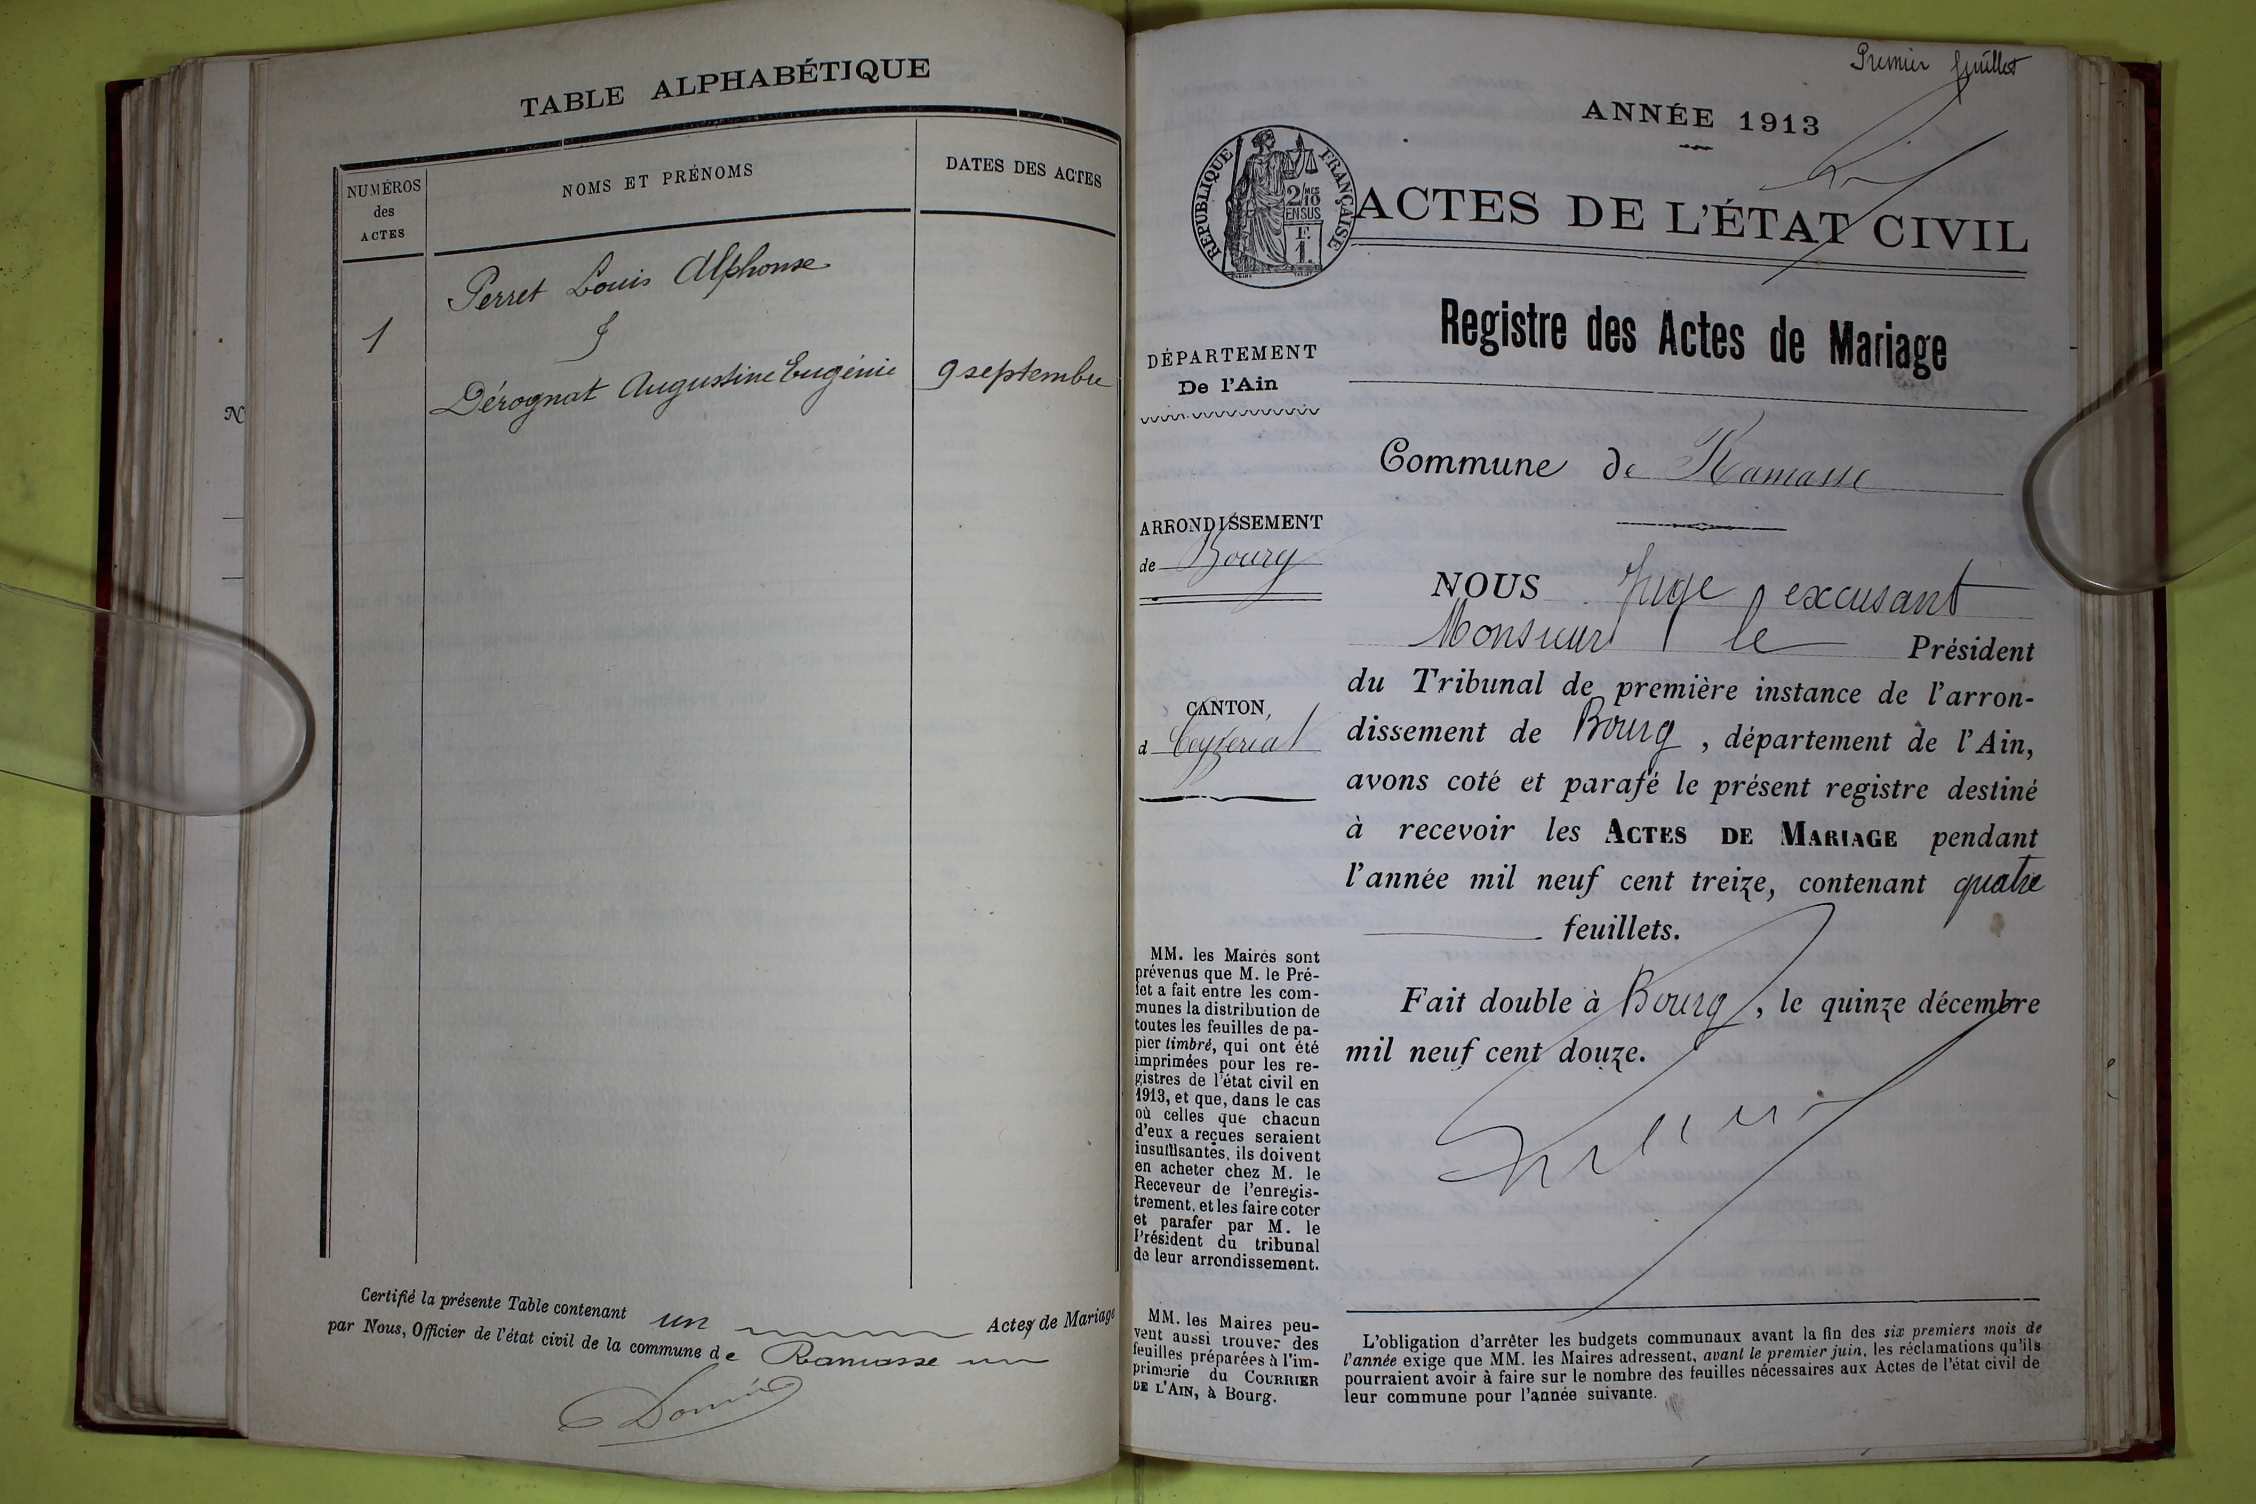 TABLE ALPHABÉTIQUE
NUMÉROS
des
ACTES
NOMS ET PRÉNOMS
DATES DES ACTES
Perret Louis Alphonse
1
&
Dérognat Augustine Eugénie
9 septembre
N
Certifié la présente Table contenant un Actes de Mariage
par Nous, Officier de l'état civil de la commune de Ramasse
Premier feuillet
ANNÉE 1913
RÉPUBLIQUE FRANÇAISE
2/MES
10
EN SUS
F.
1.
ACTES DE L'ÉTAT CIVIL
Registre des Actes de Mariage
DÉPARTEMENT
De l'Ain
Commune de Ramasse
ARRONDISSEMENT
de Bourg
NOUS Juge excusant
Monsieur le Président
du Tribunal de première instance de l'arron-
CANTON,
d Ceyzeriat
dissement de Bourg, département de l'Ain,
avons coté et parafé le présent registre destiné
à recevoir les ACTES DE MARIAGE pendant
l'année mil neuf cent treize, contenant quatre
feuillets.
Fait double à Bourg, le quinze décembre
mil neuf cent douze.
MM. les Maires sont
prévenus que M. le Pré-
fet a fait entre les com-
munes la distribution de
toutes les feuilles de pa-
pier timbré, qui ont été
imprimées pour les re-
gistres de l'état civil en
1913, et que, dans le cas
où celles que chacun
d'eux a reçues seraient
insuffisantes, ils doivent
en acheter chez M. le
Receveur de l'enregis-
trement, et les faire coter
et parafer par M. le
Président du tribunal
de leur arrondissement.
MM. les Maires peu-
vent aussi trouver des
feuilles préparées à l'im-
primerie du COURRIER
DE L'AIN, à Bourg.
L'obligation d'arrêter les budgets communaux avant la fin des six premiers mois de
l'année exige que MM. les Maires adressent, avant le premier juin, les réclamations qu'ils
pourraient avoir à faire sur le nombre des feuilles nécessaires aux Actes de l'état civil de
leur commune pour l'année suivante.